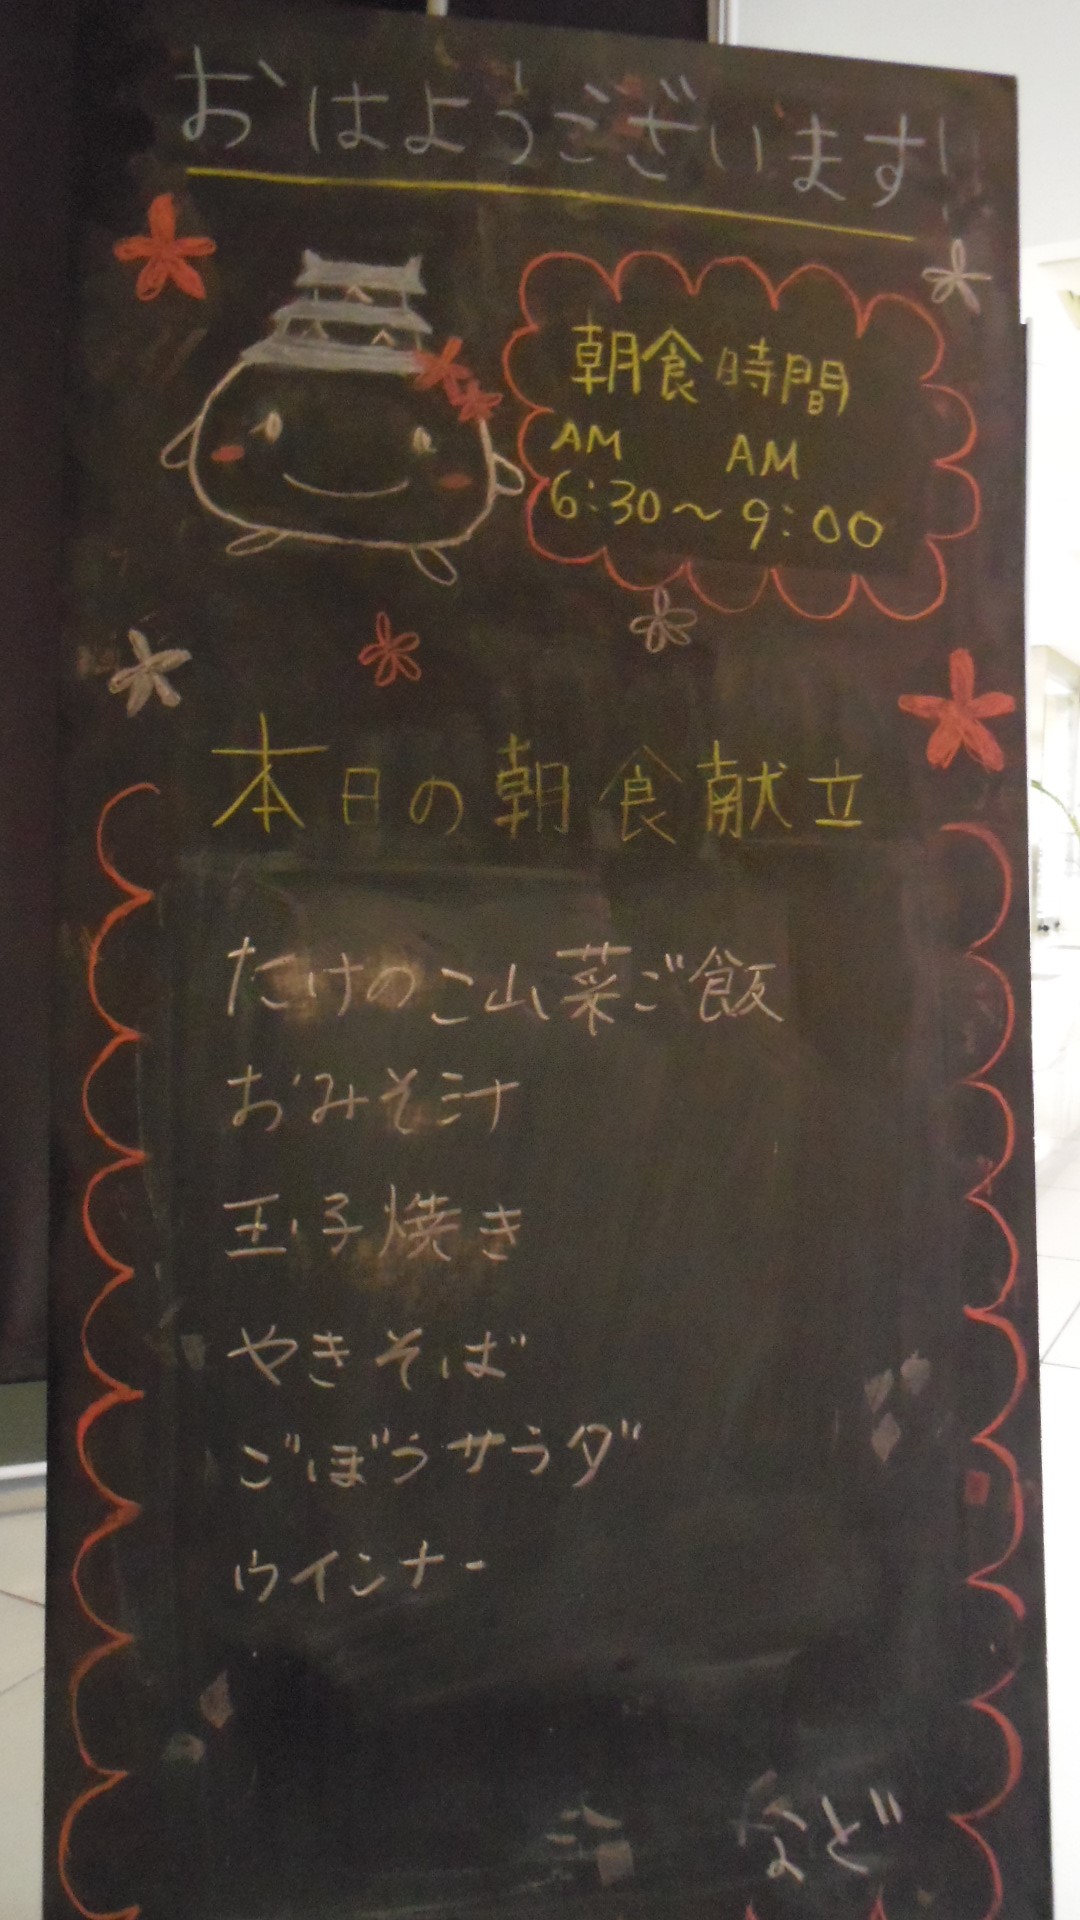 おはようございます!
朝食時間
AM AM
6:30～9:00
本日の朝食献立
たけのこ山菜ご飯
おみそ汁
玉子焼き
やきそば
ごぼうサラダ
ウインナー
など